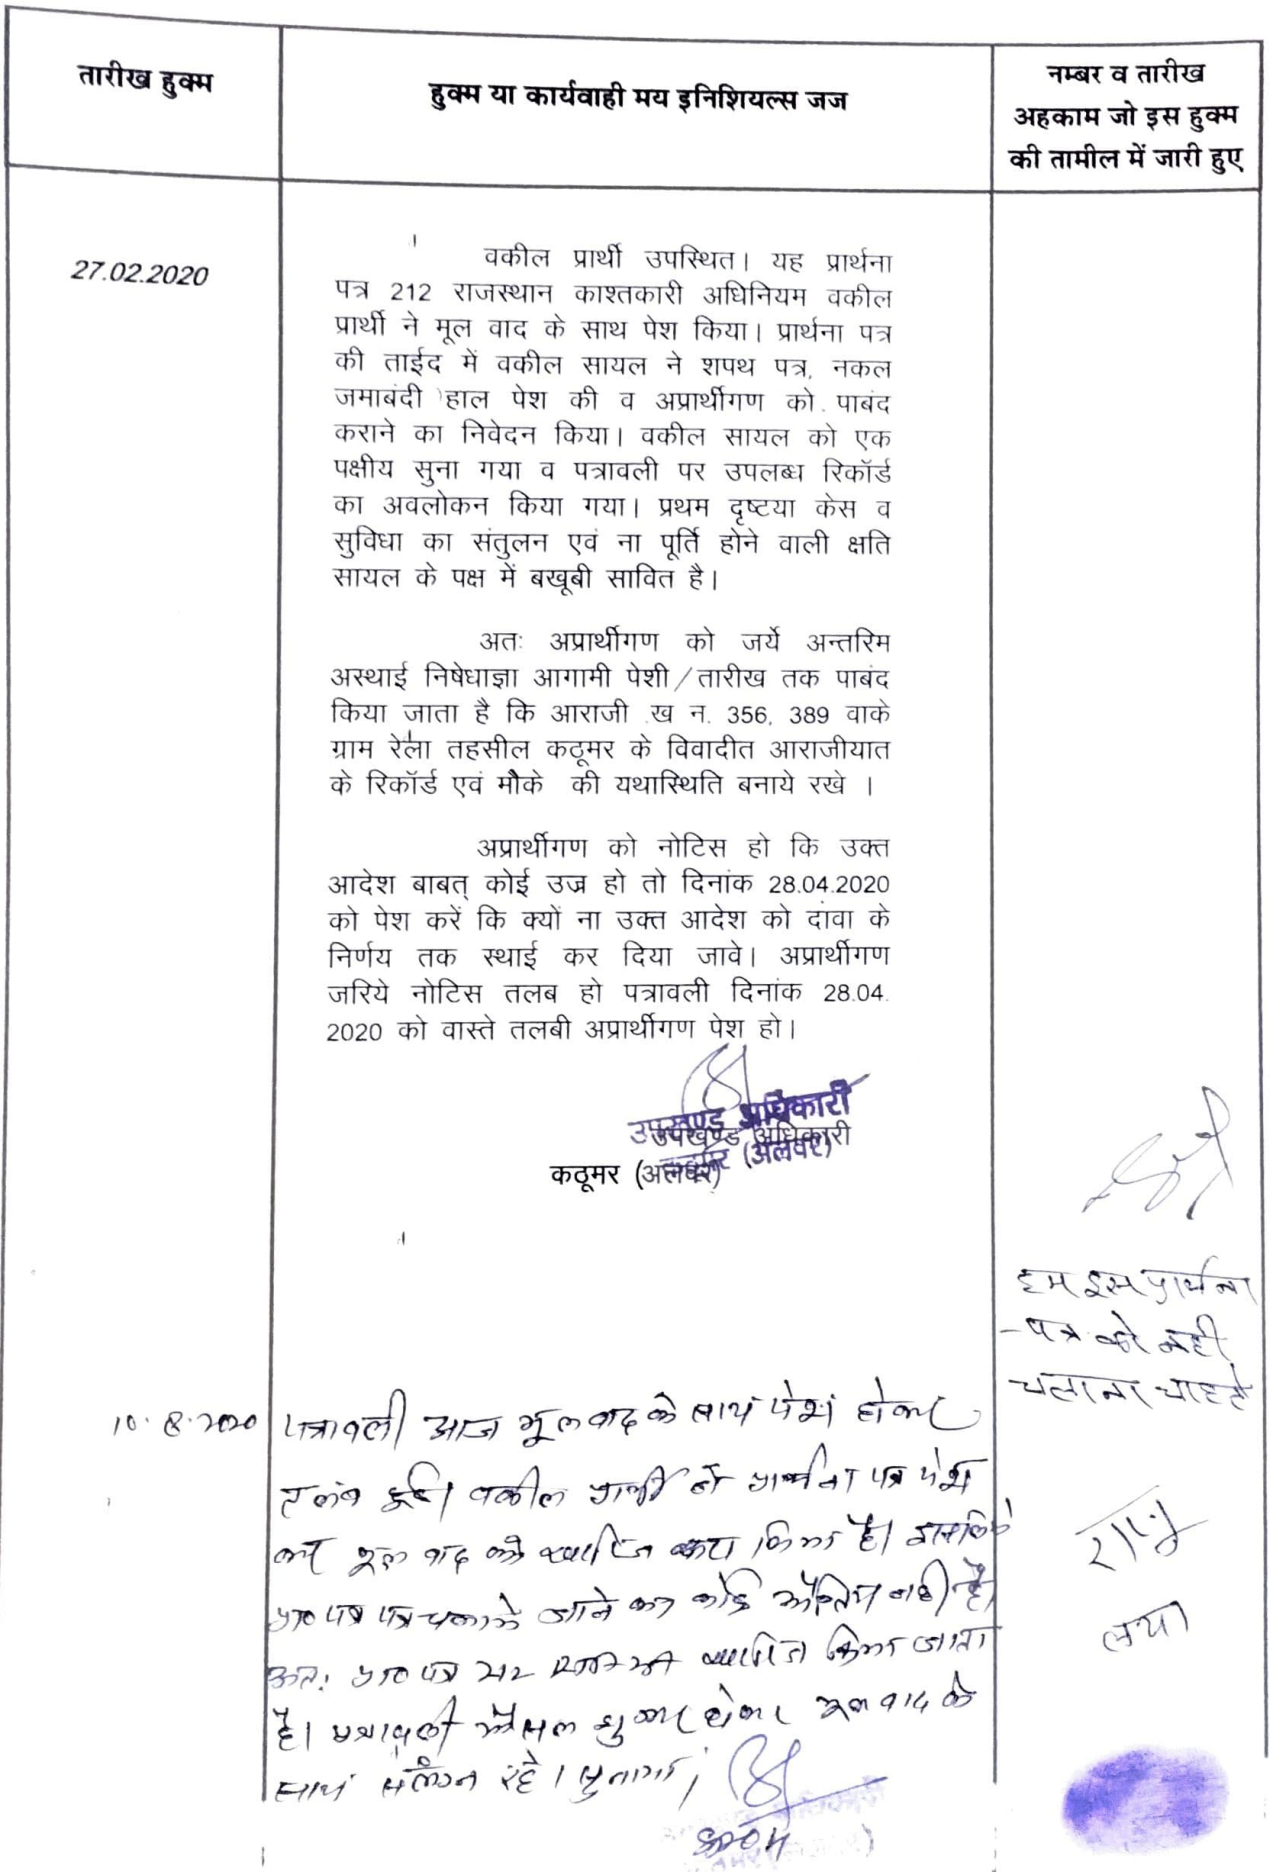 तारीख हुक्म
हुक्म या कार्यवाही मय इनिशियल्स जज
नम्बर व तारीख
अहकाम जो इस हुक्म
की तामील में जारी हुए
27.02.2020
वकील प्रार्थी उपस्थित। यह प्रार्थना
पत्र 212 राजस्थान काश्तकारी अधिनियम वकील
प्रार्थी ने मूल वाद के साथ पेश किया। प्रार्थना पत्र
की ताईद में वकील सायल ने शपथ पत्र, नकल
जमाबंदी हाल पेश की व अप्रार्थीगण को पाबंद
कराने का निवेदन किया। वकील सायल को एक
पक्षीय सुना गया व पत्रावली पर उपलब्ध रिकॉर्ड
का अवलोकन किया गया। प्रथम दृष्टया केस व
सुविधा का संतुलन एवं ना पूर्ति होने वाली क्षति
सायल के पक्ष में बखूबी सावित है।
अतः अप्रार्थीगण को जर्ये अन्तरिम
अस्थाई निषेधाज्ञा आगामी पेशी/तारीख तक पाबंद
किया जाता है कि आराजी ख न. 356, 389 वाके
ग्राम रेला तहसील कठूमर के विवादीत आराजीयात
के रिकॉर्ड एवं मौके की यथास्थिति बनाये रखे ।
अप्रार्थीगण को नोटिस हो कि उक्त
आदेश बाबत् कोई उज्र हो तो दिनांक 28.04.2020
को पेश करें कि क्यों ना उक्त आदेश को दावा के
निर्णय तक स्थाई कर दिया जावे। अप्रार्थीगण
जरिये नोटिस तलब हो पत्रावली दिनांक 28.04.
2020 को वास्ते तलबी अप्रार्थीगण पेश हो।
उपखण्ड अधिकारी
उपखण्ड अधिकारी
कठूमर (अलवर)
कठूमर (अलवर)
हम इस प्रार्थना
पत्र को नही
चलाना चाहते
10.8.2020
पत्रावली आज मूल वाद के साथ पेश होकर
तलब हुई। वकील प्रार्थी ने प्रार्थना पत्र पेश
कर मूल वाद को खारिज करा लिया है। इसलिये
प्रा० पत्र चलाये जाने का कोई औचित्य नही है।
अतः प्रा० पत्र 212 खारिज किया जाता
है। पत्रावली फैसल शुमार होकर मूल वाद के
साथ संलग्न रहे। सुनाया
राजू